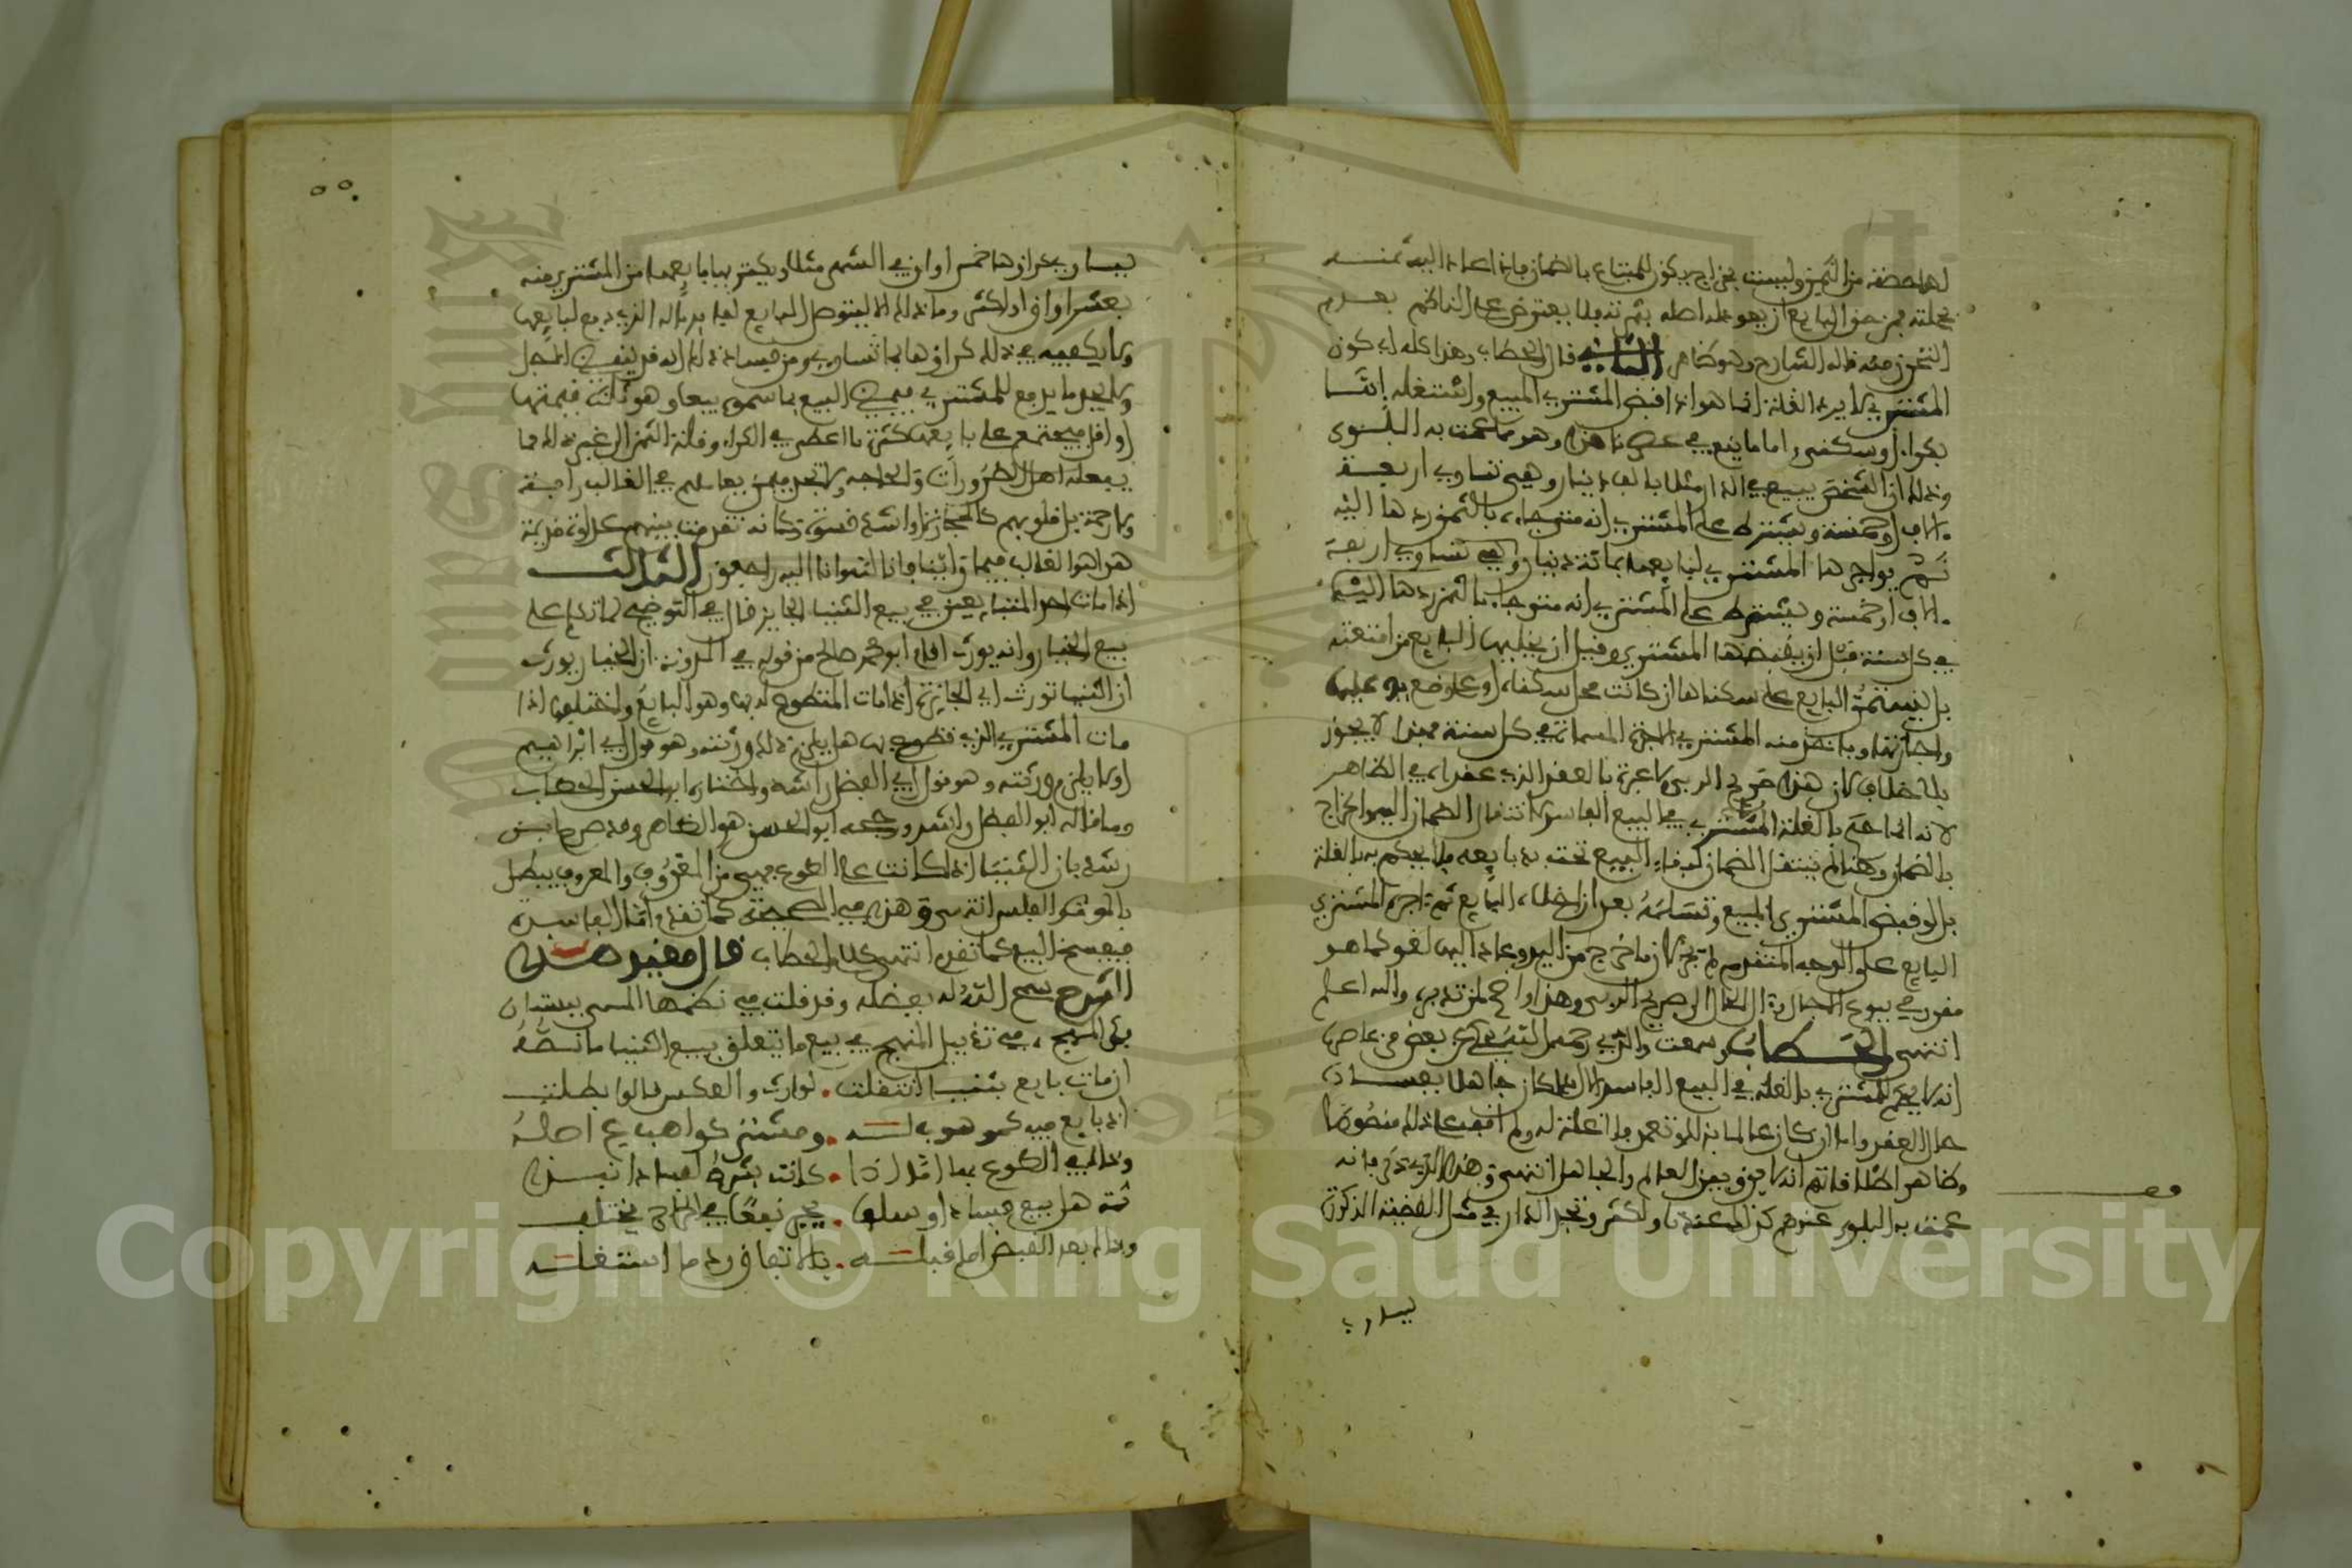 لها حصة من الثمن وليست بخراج يكون للمبتاع بالضمان فاذا اعاد اليه ثمنه
النحرز منه قاله الشارح وهو ظاهر الثاني قال الحطاب وهذا كله اي كون
المشتري لا يرد الغلة انما هو اذا قبض المشتري المبيع واشتغله اما
بكراء او سكنى واما ما يقع في عصرنا هذا وهو مما عمت به البلوى
وذلك ان الشخص يبيع الدار مثلا بالف دينار وهي تساوي اربعة
الاف او خمسة ويشترط على المشتري انه متى جاء بالثمن ردها اليه
ثم يواجرها المشتري لبايعها بمائة دينار وهي تساوي اربعة
الاف او خمسة ويشترط على المشتري انه متى جاء بالثمن ردها اليه
في كل سنة قبل ان يقبضها المشتري وقبل ان يخليها البايع من امتعته
بل يستمر البايع على سكناها ان كانت محل سكناه او على وضع يده عليها
واجارتها وياخذ منه المشتري الاجرة المسماة في كل سنة فهذا لا يجوز
بلا خلاف لان هذا صريح الربى ولا عبرة بالعقد الذي عقداه في الظاهر
لانه انما حكم بالغلة للمشتري في البيع الفاسد لانتقال الضمان اليه والخراج
بالضمان وهنا لم ينتقل الضمان لبقاء المبيع تحت يد بايعه فلا يحكم له بالغلة
بل لو قبض المشتري المبيع وتسلمه بعد ان اخلاه البايع ثم اجره المشتري
البايع على الوجه المتقدم لم يجز لان ما خرج من اليد وعاد اليها لغو كما هو
مقرر في بيوع الاجال وآل الحال الى صريح الربى وهذا واضح لمن تدبره والله اعلم
انتهى الحطاب وسمعت والدي رحمه الله يحكي عن بعض من عاصره
انه لا يحكم للمشتري بالغلة في البيع الفاسد الا اذا كان جاهلا بفساد
حال العقد واما ان كان عالما بذلك وتعمد فلا غلة له ولم اقف على ذلك منصوصا
وظاهر اطلاقاتهم انه لا يفرق بين العالم والجاهل انتهى وهذا الذي ذكر بانه
عمت به البلوى عندهم كذلك عندنا واكثر وتجد الدار في مثل القضية المذكورة
يساوي
يساوي كراؤها خمس اواق في الشهر مثلا ويكتريها بايعها من المشتري منه
بعشر اواق او اكثر وما ذلك الا ليتوصل البايع لفايدة ماله الذي دفع لبايعها
ولا يكفيه في ذلك كراؤها بما تساوي ومن فساد ذلك انه قد ينقضي الاجل
ولا يجد ما يدفع للمشتري فيمضي البيع بما سموه بيعا وهو ثلث قيمتها
او اقل فيجتمع على بايعها كثرة ما اعطى في الكراء وقلة الثمن الى غير ذلك مما
يفعله اهل الضرورات والحاجة ولا تجد فيمن يعاملهم في الغالب رافة
ولا رحمة بل قلوبهم كالحجارة او اشد قسوة وكانه تقدمت بينهم عداوة قديمة
هذا هو الغالب فيما راينا فانا لله وانا اليه راجعون الثالث
اذا مات احد المتبايعين في بيع الثنيا الجايز قال في التوضيح لما تكلم على
بيع الخيار وانه يورث اقام ابو محمد صالح من قوله في المدونة ان الخيار يورث
ان الثنيا تورث اي الجايزة اذا مات المتطوع له بها وهو البايع واختلف اذا
مات المشتري الذي تطوع بها هل يلزم ذلك ورثته وهو قول ابي ابراهيم
او لا يلزم ورثته وهو قول ابي الفضل راشد واختاره ابو الحسن الحطاب
وما قاله ابو الفضل راشد ورجحه ابو الحسن هو الظاهر وقد صرح ابن
رشد بان الثنيا اذا كانت على الطوع فهي من المعروف والمعروف يبطل
بالموت والفلس انتهى وهذا في الصحيحة كما تقدم واما الفاسدة
فيفسخ البيع كما تقدم انتهى كلام الحطاب قال مقيد هذا
الشرح سمح الله له بفضله وقد قلت في نظمها المسمى ببستان
فكر المهج في تذييل المنهج في بيع ما يتعلق ببيع الثنيا ما نصه
ان مات بايع بثنيا انتقلت لوارث والعكس قالوا بطلت
اذ بايع فيه كموهوب له ومشتر كواهب في اصله
وذاك في الطوع بها اما اذا كانت بشرط لفساد انبذا
ثمة هل بيع فساد او سلف يجر نفعا في الخراج يختلف
وذاك بعد القبض اما قبله بالاتفاق رد ما استغله